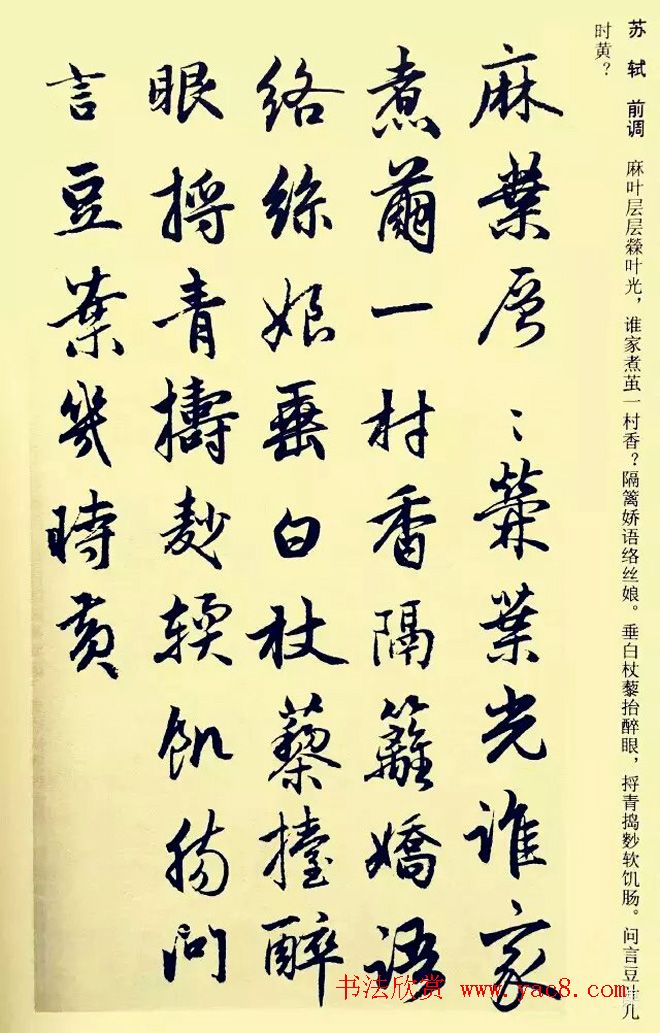 苏 轼 前调 麻叶层层檾叶光，谁家煮茧一村香？隔篱娇语络丝娘。垂白杖藜抬醉眼，捋青捣麨软饥肠。问言豆叶几
时黄？
麻葉層〻檾葉光誰家
煮繭一村香隔籬嬌語
絡絲娘垂白杖藜擡醉
眼捋青擣麨輭飢腸問
言豆葉幾時黃
书法欣赏 www.yac8.com